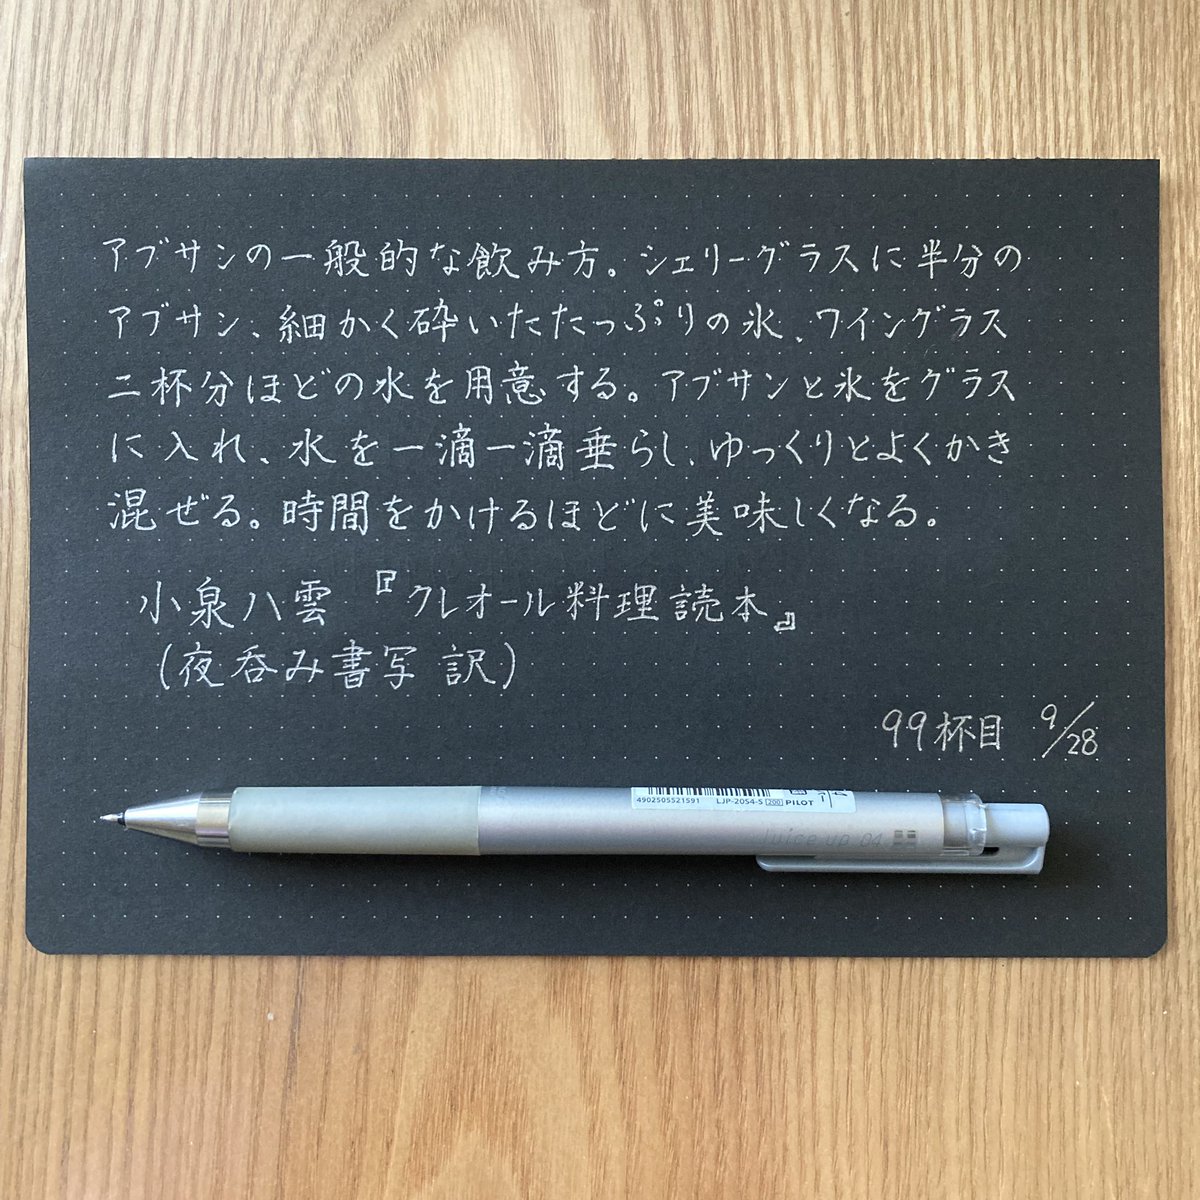 アブサンの一般的な飲み方。シェリーグラスに半分の
アブサン、細かく砕いたたっぷりの氷、ワイングラス
二杯分ほどの水を用意する。アブサンと氷をグラス
に入れ、水を一滴一滴垂らし、ゆっくりとよくかき
混ぜる。時間をかけるほどに美味しくなる。
小泉八雲『クレオール料理読本』
(夜呑み書写 訳)
99杯目 9/28
4902505521591 LJP-20S4-S 200 PILOT
Juice up 04